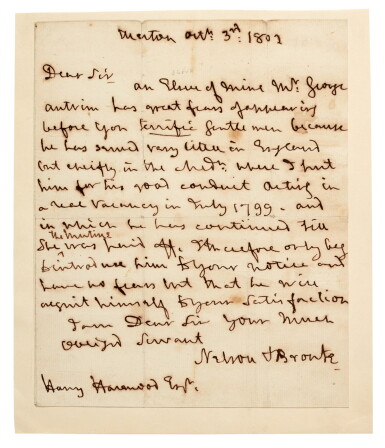 Merton octr. 3rd. 1802
Dear Sir
an Eleve of mine Mr. George
antrim has great fears of appearing
before you terrific Gentlemen because
he has served very little in England
but cheifly in the Medn. where I put
him for his good conduct acting in
a real vacancy in July 1799. and
in which he has continued till
the Mutine
She was paid off. I therefore only beg
to introduce him to your notice and
have no fears but that he will
acquit himself to your satisfaction
I am Dear Sir Your Much
Obliged Servant
Nelson & Bronte
Harry Harmood Esqr.